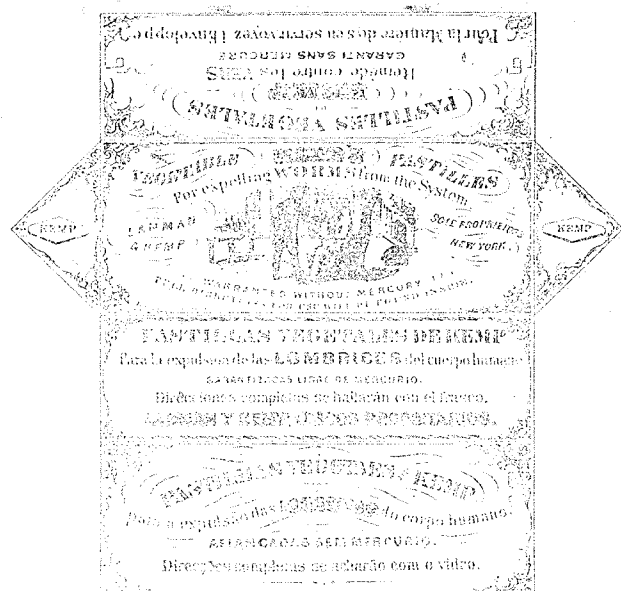 Pour la Maniere de s'en servir voyez l'Enveloppe
GARANTI SANS MERCURE
Remède contre les VERS
PASTILLES VEGETALES
VEGETABLE PASTILLES
For expelling WORMS from the System
LANMAN & KEMP
SOLE PROPRIETORS
NEW YORK.
KEMP
KEMP
WARRANTED WITHOUT MERCURY
FULL DIRECTIONS FOR USE WILL BE FOUND INSIDE.
PASTILLAS VEGETALES DE KEMP
Para la expulsion de las LOMBRICES del cuerpo humano
GARANTIZADAS LIBRE DE MERCURIO.
Direcciones completas se hallarán con el frasco.
LANMAN Y KEMP UNICOS PROPIETARIOS.
PASTILHAS VEGETAES KEMP
Para a expulsão das LOMBRIGAS do corpo humano.
AFIANÇADAS SEM MERCURIO.
Direcções completas se acharão com o vidro.